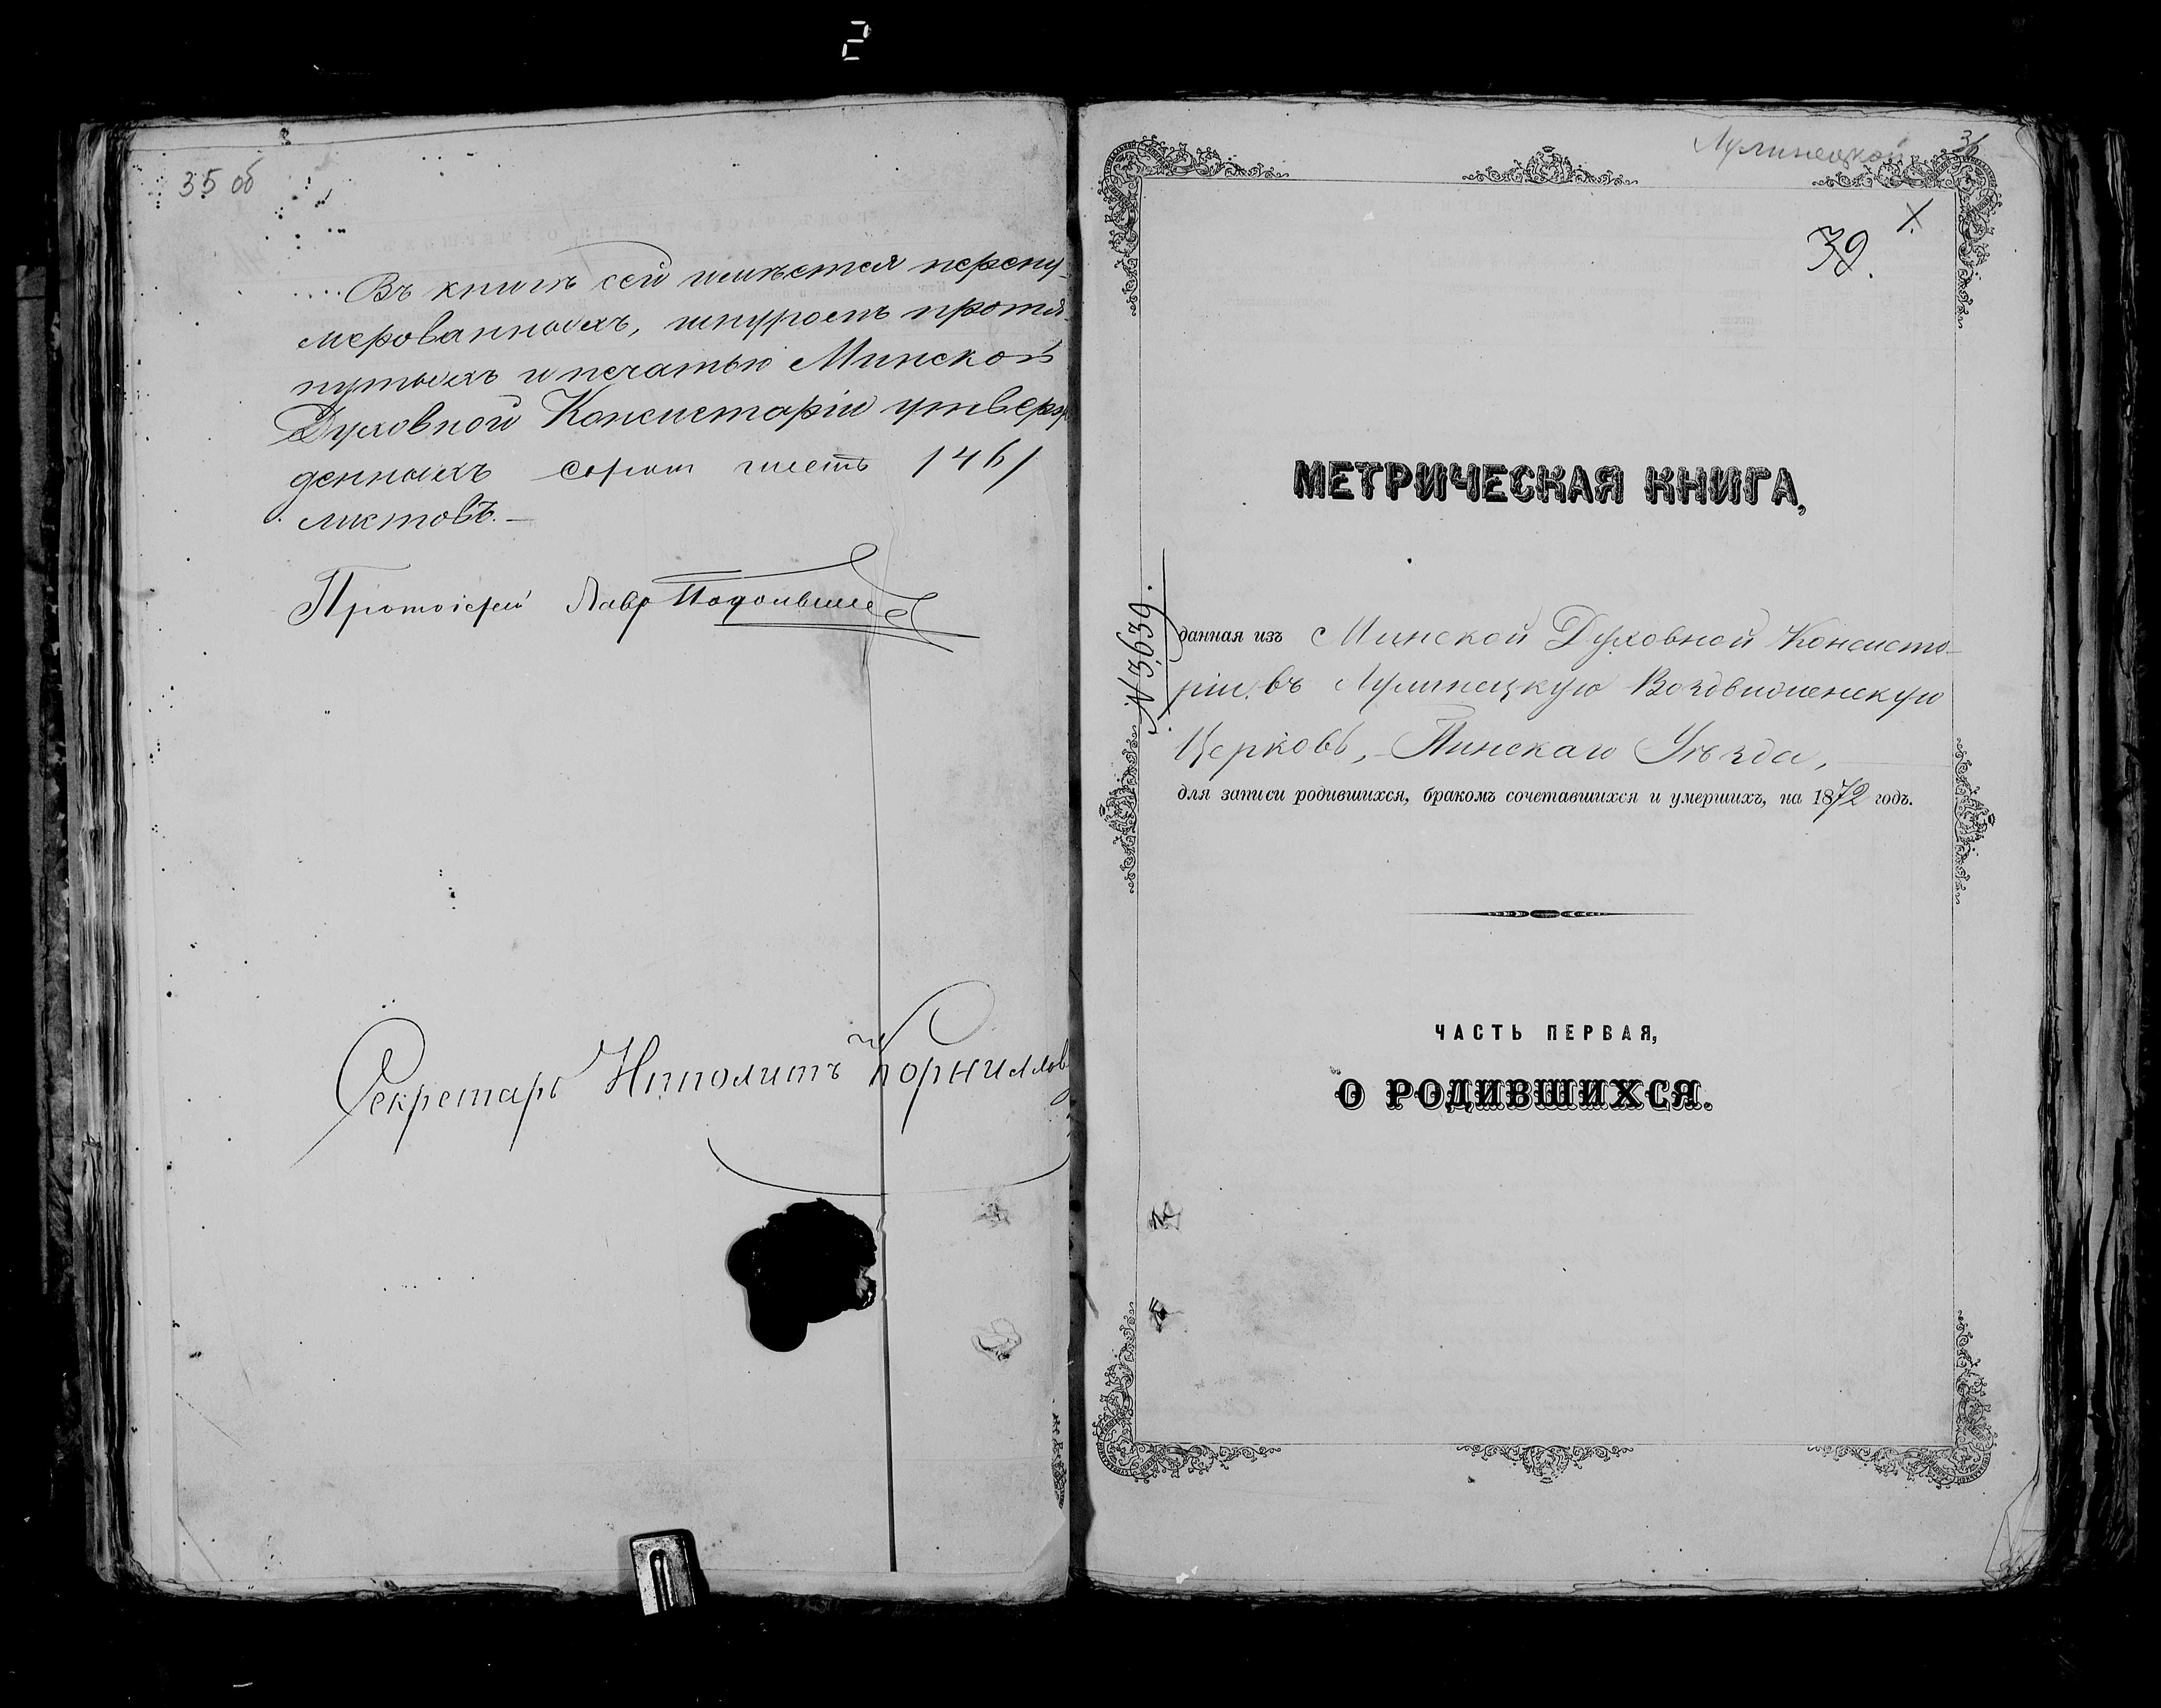 2
35 об
Въ книгѣ сей имѣется перену-
мерованныхъ, шнуромъ протя-
нутыхъ и печатью Минской
Духовной Консисторіи утверж
денныхъ сорок шесть /46/
листовъ.—
Протоіерей Лавр
Секретарь Ипполитъ Корнилов
Лулинецкой
36
1.
39.
МЕТРИЧЕСКАЯ КНИГА,
№ 3639.
данная изъ Минской Духовной Консисто-
ріи въ Лулинецкую Воздвиженскую
Церковь, Пинскаго Уѣзда,
для записи родившихся, бракомъ сочетавшихся и умершихъ, на 1872 годъ.
ЧАСТЬ ПЕРВАЯ,
О РОДИВШИХСЯ.